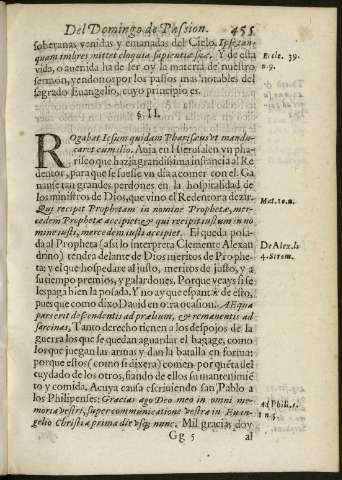 Del Domingo de Passion. 455
soberanas venidas y emanadas del Cielo. Ipse tan-
quam imbres mittet eloquia sapientiæ suæ. Y de esta
vida, o auenida ha de ser oy la materia de nuestro
sermon, yendonos por los passos mas notables del
sagrado Euangelio, cuyo principio es.
Eccle. 39.
n. 9.
§. II.
ROgabat Iesum quidam Pharisæus vt mandu-
caret cum illo. Auia en Hierusalen vn pha-
riseo que hazia grandissima instancia al Re-
dentor, para que se fuesse vn dia a comer con el. Ga
nanse tan grandes perdones en la hospitalidad de
los ministros de Dios, que vino el Redentor a dezir.
Qui recipit Prophetam in nomine Prophetæ, mer-
cedem Prophetæ accipiet: & qui recipit iustum in no
mine iusti, mercedem iusti accipiet. El que da posa-
da al Propheta (assi lo interpreta Clemente Alexan
drino) tendra delante de Dios meritos de Prophe-
ta: y el que hospedare al justo, meritos de justo, y a
su tiempo premios, y galardones. Porque veays si se
les paga bien la posada. Y no ay que espantar de esto,
pues que como dixo Dauid en otra ocasion. AEqua
pars erit descendentis ad prælium, & remanentis ad
sarcinas, Tanto derecho tienen a los despojos de la
guerra los que se quedan aguardar el bagage, como
los que juegan las armas y dan la batalla en forma:
porque estos (como si dixera) comen por queta del
cuydado de los otros, fiando de ellos su mantenimiẽ
to y comida. Acuya causa escriuiendo san Pablo a
los Philipenses: Gracias ago Deo meo in omni me-
moria vestri, super communicatione vestra in Euan-
gelio Christi a prima die vsq; nunc. Mil gracias doy
Mat. 10.
De Alex. li
4. Strom.
Ad Phili. 1.
n. 3.
Gg 5 al